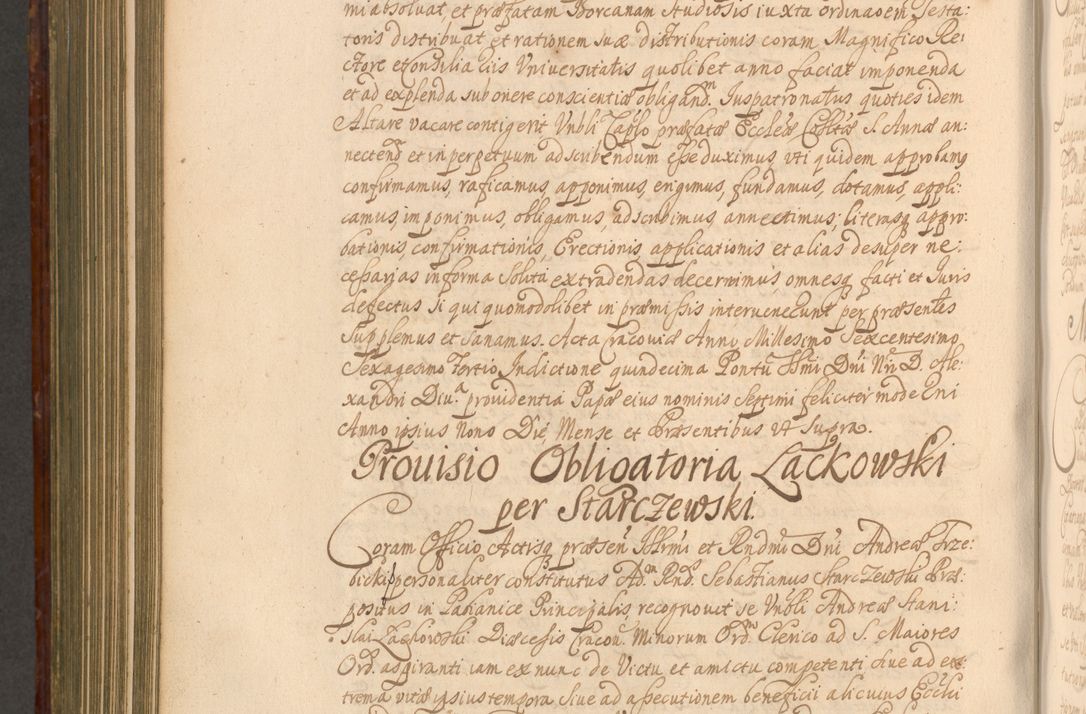 mi absoluat, et præfatam Borcanam Studiosis iuxta ordinaoem Testa:
toris distribuat et rationem suæ distributionis coram Magnifico Re:
ctore et Consilia iis Vniversitatis quolibet anno faciat imponenda
et ad explenda sub onere conscientiæ obligand.m Iuspatronatus quoties idem
Altare vacare contigerit Vnbli Caplo præfatæ Eccleæ Colltæ S. Annæ an:
nectend et in perpetuum adscribendum esse duximus, vti quidem approbamq
confirmamus, raficamus, apponimus, erigimus, fundamus, dotamus, appli:
camus, imponimus, obligamus, adscribimus, annectimus; literasq appro:
bationis, confirmationis, Erectionis, applicationis et alias desuper ne:
cessarias in forma Solita extradendas decernimus omnesq facti et Iuris
defectus si qui quomodolibet in præmissis intervenerunt per præsentes
Supplemus et Sanamus. Acta Cracoviæ Anno Millesimo Sexcentesimo
Sexagesimo Tertio Indictione quindecima Pontu SSmi Dni Nri D. Ale:
xandri Diu.a providentia Papæ eius nominis Septimi feliciter moderni
Anno ipsius Nono Die, Mense et Præsentibus vt Supra.
Provisio Obligatoria Lackowski
per Starczewski.
Coram Officio Actisq præsen Illrmi et Rndmi Dni Andreæ Trze:
bicki personaliter constitutus Ad.m Rnd. Sebastianus Starczewski Præ:
positus in Pakanice Principalis recognovit se Vnbli Andreæ Stani:
slai Lackowski Diæcesis Cracou. Minorum Ord.m Clerico ad S. Maiores
Ord. aspiranti iam ex nunc de Victu et amictu competenti siue ad ex:
trema vitæ ipsius tempora siue ad assecutionem beneficii alicuius Ecclii